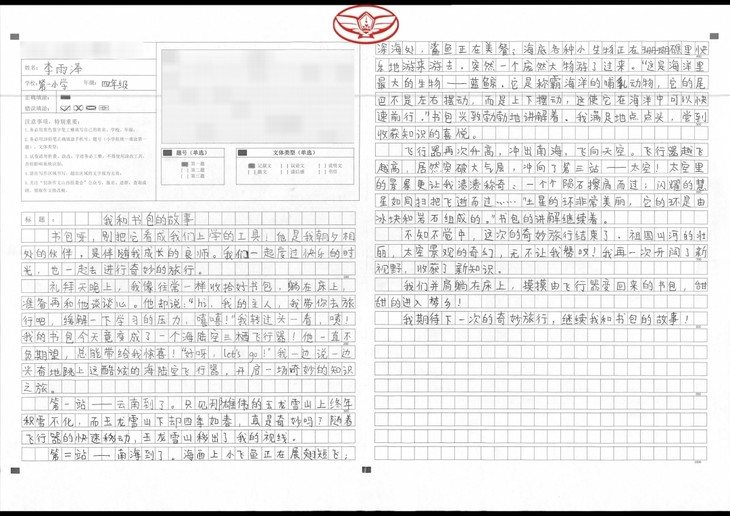 姓名：李雨泽
学校：第一小学 年级：四年级
正确填涂：
错误填涂：
注意事项，特别重要：
题号（单选）
第一题
第二题
第三题
文体类型（单选）
记叙文
议论文
说明文
散文
读后感
书信
标题：
我和书包的故事
书包呀，别把它看成我们上学的工具，他是我朝夕相
处的伙伴，是伴随我成长的良师。我们一起度过快乐的时
光，也一起去进行奇妙的旅行。
礼拜天晚上，我像往常一样收拾好书包，躺在床上，
准备再和他谈谈心。他却说："hi，我的主人，我带你去旅
行吧，缓解一下学习的压力，嘻嘻！"我转过头一看，嘿！
我的书包今天竟变成了一个海陆空三栖飞行器！他一直不
负期望，总能带给我惊喜！"好呀，let's go！"我一边说一边
兴奋地跳上这酷炫的海陆空飞行器，开启一场奇妙的知识
之旅。
第一站——云南到了。只见那雄伟的玉龙雪山上终年
积雪不化，而玉龙雪山下却四季如春，真是奇妙吗？随着
飞行器的快速移动，玉龙雪山移出了我的视线。
第二站——南海到了。海面上小飞鱼正在展翅短飞；
深海处，鲨鱼正在美餐；海底各种小生物正在珊瑚礁里快
乐地游来游去。突然一个庞然大物游了过来。"这是海洋里
最大的生物——蓝鲸，它是称霸海洋的哺乳动物，它的尾
巴不是左右摆动，而是上下摆动，这使它在海洋中可以快
速前行。"书包兴致勃勃地讲解着。我满足地点点头，尝到
收获知识的喜悦。
飞行器再次升高，冲出南海，飞向天空。飞行器越飞
越高，居然突破大气层，冲向了第三站——太空！太空里
的景象更让我啧啧称奇：一个个陨石擦肩而过；闪耀的彗
星如同扫把飞逝而过……"土星的环非常美丽，它的环是由
冰块和岩石组成的。"书包的讲解继续着。
不知不觉中，这次的奇妙旅行结束了。祖国山河的壮
丽，太空景观的奇幻，无不让我赞叹！我再一次开阔了新
视野，收获了新知识。
我们并肩躺在床上，摸摸由飞行器变回来的书包，甜
甜的进入梦乡！
我期待下一次的奇妙旅行，继续我和书包的故事！